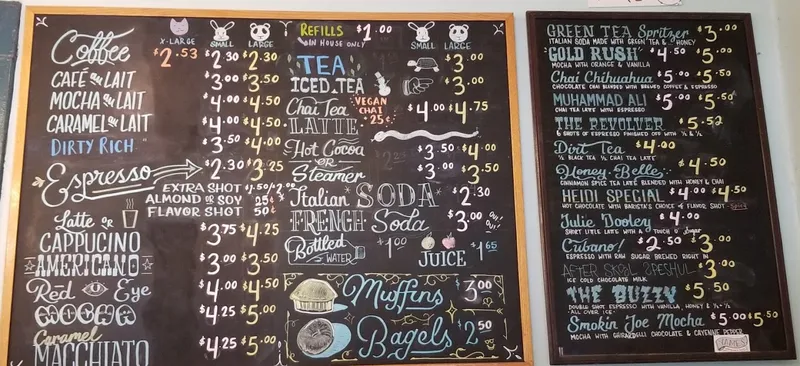 X-LARGE SMALL LARGE
Coffee $2.53 $2.30 $2.30
CAFÉ au LAIT $3.00 $3.50
MOCHA au LAIT $4.00 $4.50
CARAMEL au LAIT $4.00 $4.50
DIRTY RICH $3.50 $4.00
Espresso $2.30 $3.25
EXTRA SHOT
ALMOND OR SOY 25¢
FLAVOR SHOT 50¢
Latte OR
CAPPUCINO $3.75 $4.25
AMERICANO $3.00 $3.50
Red Eye $4.00 $4.50
MOCHA $4.25 $5.00
Caramel
MACCHIATO $4.25 $5.00
REFILLS $1.00
IN HOUSE ONLY
SMALL LARGE
TEA $3.00
ICED TEA $3.00
Chai Tea
LATTE
VEGAN
CHAI
+25¢
$4.00 $4.75
Hot Cocoa $3.50 $4.00
OR
Steamer $3.00 $3.50
Italian SODA $2.30
FRENCH Soda $3.00
Bottled WATER $1.00
JUICE $1.65
Muffins $3.00
Bagels $2.50
GREEN TEA Spritzer $3.00
ITALIAN SODA MADE WITH GREEN TEA & HONEY
GOLD RUSH $4.50 $5.00
MOCHA WITH ORANGE & VANILLA
Chai Chihuahua $5.00 $5.50
CHOCOLATE CHAI BLENDED WITH BREWED COFFEE & ESPRESSO
MUHAMMAD ALI $5.00 $5.50
CHAI TEA LATTE WITH ESPRESSO
THE REVOLVER $5.52
6 SHOTS OF ESPRESSO FINISHED OFF WITH ½ & ½
Dirt Tea $4.00
½ BLACK TEA ½ CHAI TEA LATTE
Honey Belle $4.50
CINNAMON SPICE TEA LATTE BLENDED WITH HONEY & CHAI
HEIDI SPECIAL $4.00 $4.50
HOT CHOCOLATE WITH BARISTA'S CHOICE of FLAVOR SHOT
Julie Dooley $4.00
SHORT LITTLE LATTE WITH A TOUCH O' Sugar
Cubano! $2.50 $3.00
ESPRESSO WITH RAW SUGAR BREWED RIGHT IN
AFTER SKOOL SPESHUL $3.00
ICE COLD CHOCOLATE MILK
THE BUZZY $5.50
DOUBLE SHOT ESPRESSO WITH VANILLA, HONEY & ½ & ½
ALL OVER ICE
Smokin Joe Mocha $5.00 $5.50
MOCHA WITH GHIRARDELLI CHOCOLATE & CAYENNE PEPPER